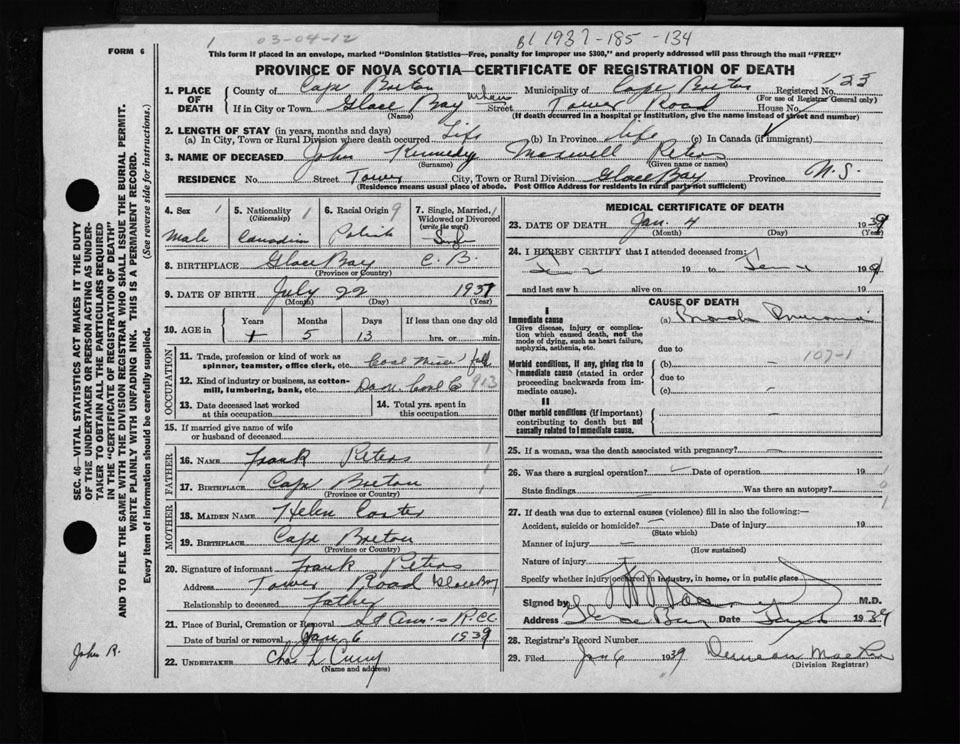 1 03-04-12
bl 1937-185-134
FORM 6
This form if placed in an envelope, marked "Dominion Statistics—Free, penalty for improper use $300," and properly addressed will pass through the mail "FREE"
PROVINCE OF NOVA SCOTIA—CERTIFICATE OF REGISTRATION OF DEATH
SEC. 46—VITAL STATISTICS ACT MAKES IT THE DUTY
OF THE UNDERTAKER OR PERSON ACTING AS UNDER-
TAKER TO OBTAIN ALL THE PARTICULARS REQUIRED
IN THE "CERTIFICATE OF REGISTRATION OF DEATH"
AND TO FILE THE SAME WITH THE DIVISION REGISTRAR WHO SHALL ISSUE THE BURIAL PERMIT.
WRITE PLAINLY WITH UNFADING INK. THIS IS A PERMANENT RECORD.
Every item of information should be carefully supplied. (See reverse side for instructions.)
1. PLACE OF DEATH County of Cape Breton Municipality of Cape Breton Registered No. 123
(For use of Registrar General only)
If in City or Town Glace Bay Street Tower Road House No.
(Name) (If death occurred in a hospital or institution, give the name instead of street and number)
2. LENGTH OF STAY (in years, months and days)
(a) In City, Town or Rural Division where death occurred Life (b) In Province life (c) In Canada (if immigrant)
3. NAME OF DECEASED John Kennedy Maxwell Peters
(Surname) (Given name or names)
RESIDENCE No. Street Tower City, Town or Rural Division Glace Bay Province N.S.
(Residence means usual place of abode. Post Office Address for residents in rural parts not sufficient)
4. Sex 1 Male
5. Nationality (Citizenship) 1 Canadian
6. Racial Origin 9
7. Single, Married, Widowed or Divorced (write the word) 1 Single
8. BIRTHPLACE Glace Bay C. B.
(Province or Country)
9. DATE OF BIRTH July 22 1937
(Month) (Day) (Year)
10. AGE in Years Months Days If less than one day old
1 5 13 hrs. or min.
OCCUPATION
11. Trade, profession or kind of work as spinner, teamster, office clerk, etc. Coal Miner
12. Kind of industry or business, as cotton-mill, lumbering, bank, etc. Dom. Coal Co 913
13. Date deceased last worked at this occupation
14. Total yrs. spent in this occupation
15. If married give name of wife or husband of deceased
FATHER
16. NAME Frank Peters
17. BIRTHPLACE Cape Breton
(Province or Country)
MOTHER
18. MAIDEN NAME Helen
19. BIRTHPLACE Cape Breton
(Province or Country)
20. Signature of informant Frank Peters
Address Tower Road Glace Bay
Relationship to deceased Father
21. Place of Burial, Cremation or Removal St Ann's R.C.
Date of burial or removal Jan 6 1939
22. UNDERTAKER Chas L Curry
(Name and address)
John R.
MEDICAL CERTIFICATE OF DEATH
23. DATE OF DEATH Jan. 4 1939
(Month) (Day) (Year)
24. I HEREBY CERTIFY that I attended deceased from:
Jan 2 19 to Jan 4 19
and last saw h alive on 19
CAUSE OF DEATH
I
Immediate cause (a) Broncho Pneumonia
Give disease, injury or complication which caused death, not the mode of dying, such as heart failure, asphyxia, asthenia, etc.
due to 107-1
Morbid conditions, if any, giving rise to immediate cause (stated in order proceeding backwards from immediate cause). (b)
due to
(c)
II
Other morbid conditions (if important) contributing to death but not causally related to immediate cause.
25. If a woman, was the death associated with pregnancy?
26. Was there a surgical operation? Date of operation 19
State findings Was there an autopsy?
27. If death was due to external causes (violence) fill in also the following:—
Accident, suicide or homicide? Date of injury 19
(State which)
Manner of injury
(How sustained)
Nature of injury
Specify whether injury occurred in industry, in home, or in public place
Signed by M.D.
Address Glace Bay Date Jan 1939
28. Registrar's Record Number
29. Filed Jan 6 1939 Duncan
(Division Registrar)